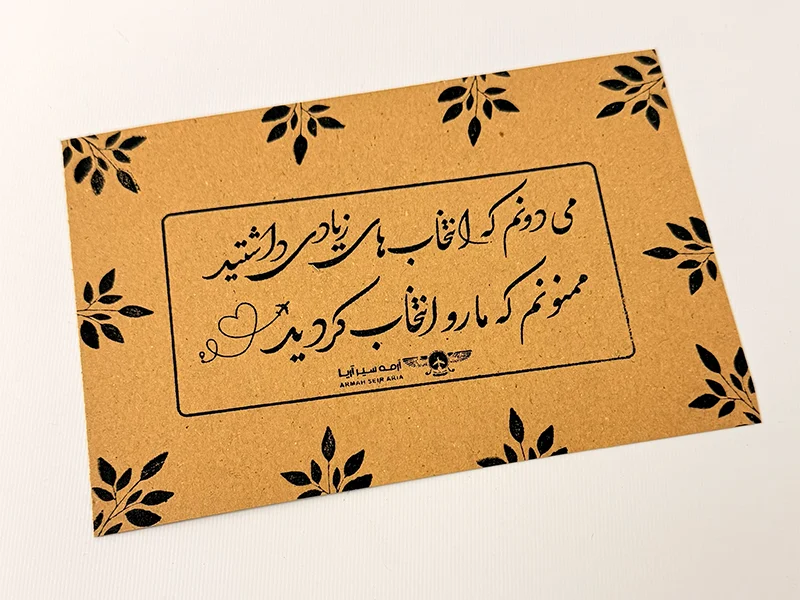 می دونم که انتخاب های زیادی داشتید
ممنونم که ما رو انتخاب کردید
آرمه سیر آریا
ARMAH SEIR ARIA